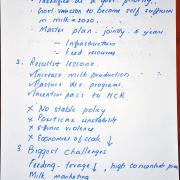 as a gov't priority.
Govt mission to become self sufficient
in milk > 2020.
- Master plan - jointly - 5 years
- Infrastructure
- Feed resources
2. Resultive lessons:
Increase milk production
Pasture dev. program.
x No stable policy
x Political unstability
x Ethnic violence
x Economies of scale ↓
3 Biggest challenges
Feeding - forage ↓, high concentrate
Milk marketing